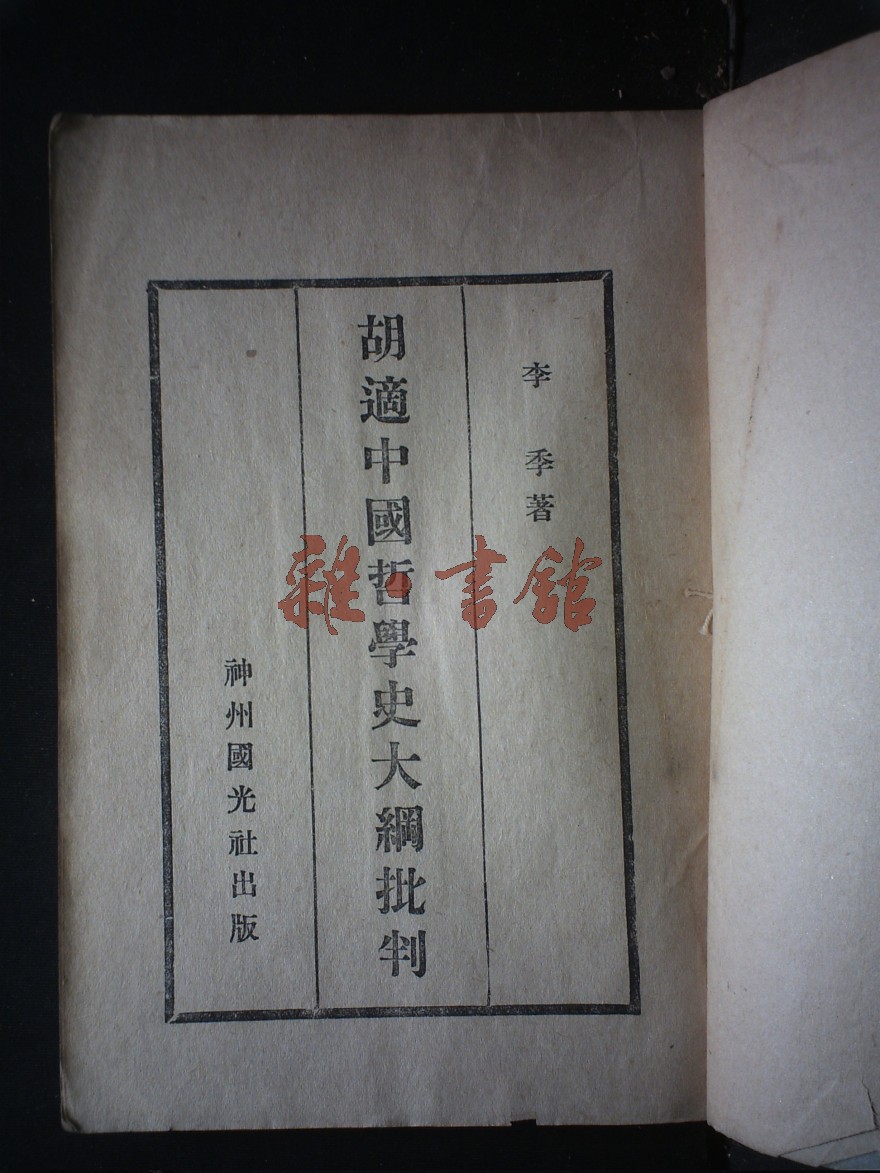 李季著
胡適中國哲學史大綱批判
神州國光社出版
雜·書館